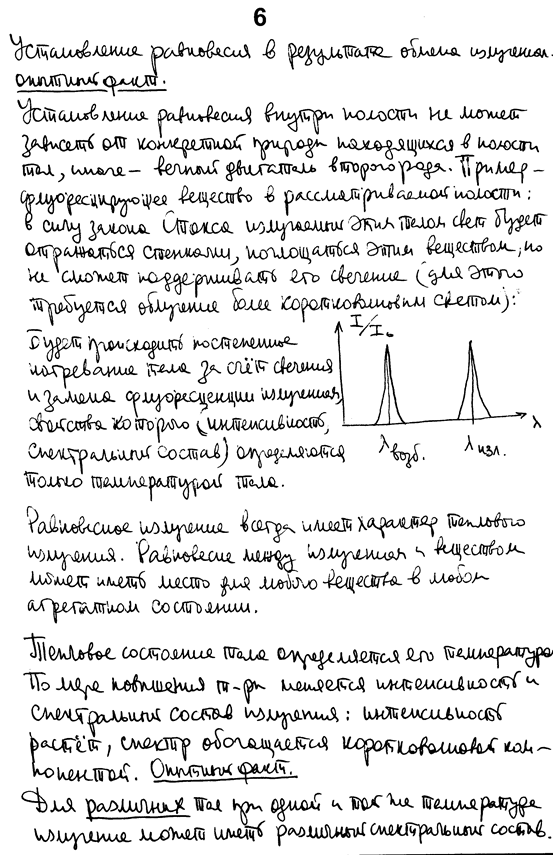 6
Установление равновесия в результате обмена излучением –
опытный факт.
Установление равновесия внутри полости не может
зависеть от конкретной природы находящихся в полости
тел, иначе – вечный двигатель второго рода. Пример –
флуоресцирующее вещество в рассматриваемой полости:
в силу закона Стокса излучаемый этим телом свет будет
отражаться стенками, поглощаться этим веществом, но
не сможет поддерживать его свечение (для этого
требуется облучение более коротковолновым светом):
Будет происходить постепенное
нагревание тела за счёт свечения
и замена флуоресценции излучением,
свойства которого (интенсивность,
спектральный состав) определяются
только температурой тела.
I/I₀
λ
λ возб.
λ изл.
Равновесное излучение всегда имеет характер теплового
излучения. Равновесие между излучением и веществом
может иметь место для любого вещества в любом
агрегатном состоянии.
Тепловое состояние тела определяется его температурой
По мере повышения т-ры меняется интенсивность и
спектральный состав излучения: интенсивность
растёт, спектр обогащается коротковолновой ком-
понентой. Опытный факт.
Для различных тел при одной и той же температуре
излучение может иметь различный спектральный состав.